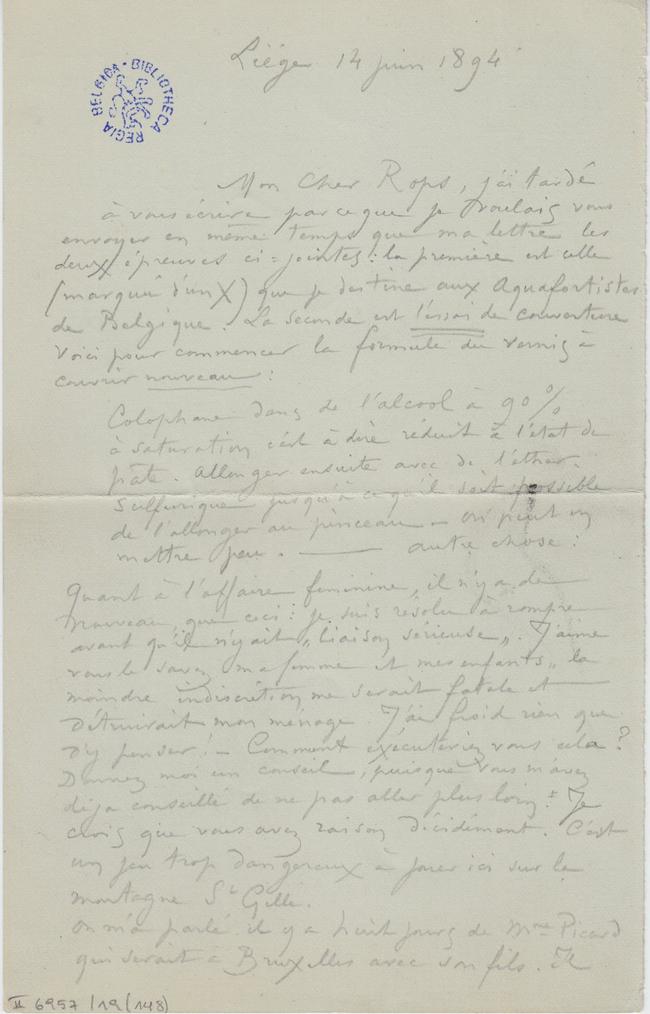 Liége 14 juin 1894
BIBLIOTHECA REGIA BELGICA
Mon Cher Rops, j'ai tardé
à vous écrire parceque je voulais vous
envoyer en même temps que ma lettre les
deux épreuves ci=jointes: la première est celle
(marquée d'un X) que je destine aux Aquafortistes
de Belgique. La seconde est l'essai de couverture
Voici pour commencer la formule du vernis à
couvrir nouveau:
Colophane dans de l'alcool à 90%
à saturation c'est à dire réduit à l'état de
pâte. Allonger ensuite avec de l'éther
sulfurique jusqu'à ce qu'il soit possible
de l'allonger au pinceau — on peut en
mettre peu. — autre chose:
Quant à l'affaire féminine, il n'y a de
nouveau, que ceci: je suis résolu à rompre
avant qu'il n'y ait „liaison sérieuse„. J'aime
vous le savez ma femme et mes enfants„ la
moindre indiscrétion me serait fatale et
détruirait mon ménage. J'ai froid rien que
d'y penser! — Comment exécuteriez vous cela?
Donnez moi un conseil, puisque vous m'avez
déja conseillé de ne pas aller plus loin! Je
crois que vous avez raison décidément. C'est
un jeu trop dangereux à jouer ici sur la
montagne St Gille.
On m'a parlé il y a huit jours de Mme Picard
qui serait à Bruxelles avec son fils. Il
II 6957/19(148)